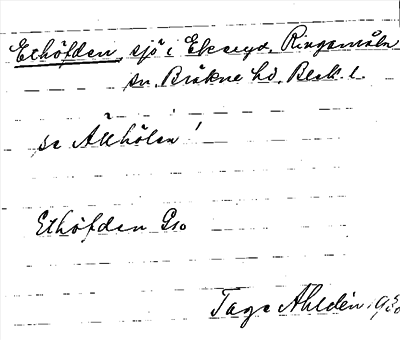 Ethöfden, sjö i Ekeryd, Ringamåla
sn, Bräkne hd, Blek. l.
se Ällhölen
Ethöfden Gso
Tage Ahldén 1930